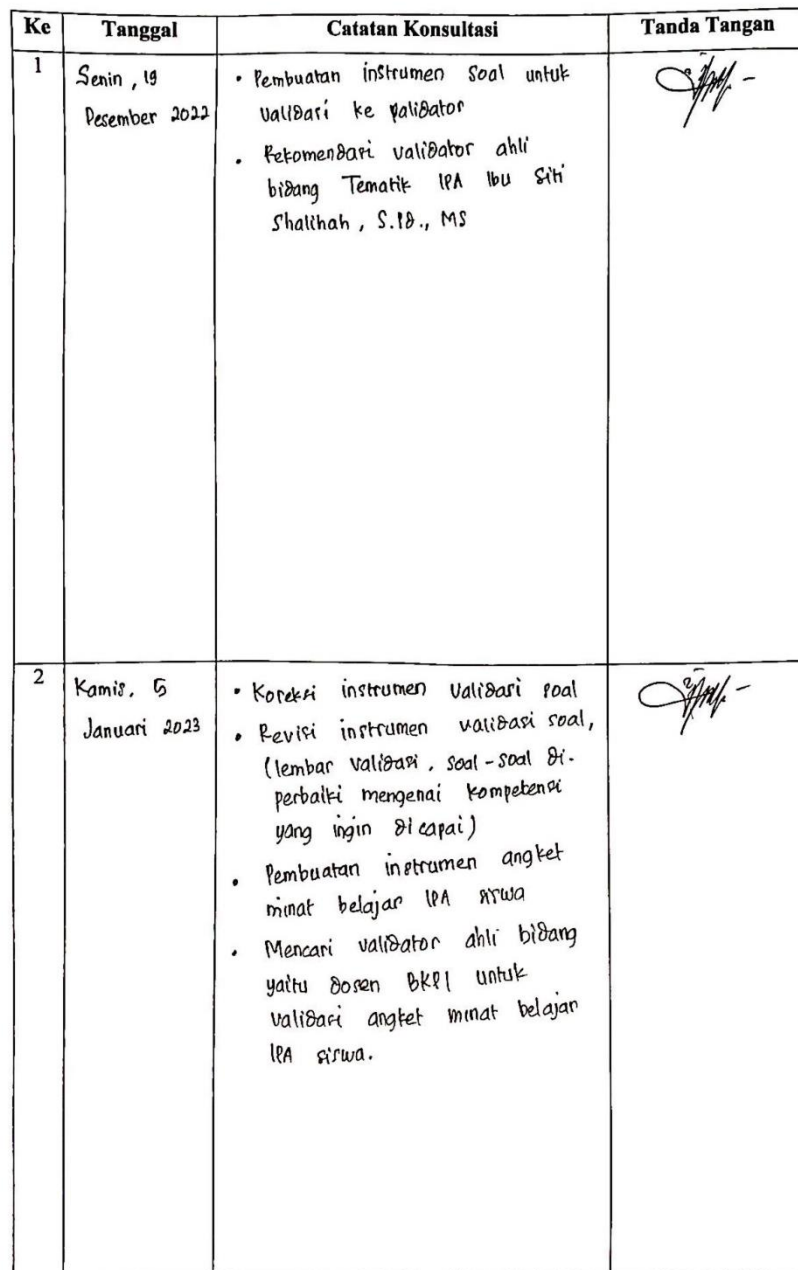 Ke Tanggal Catatan Konsultasi Tanda Tangan
1
Senin, 19
Desember 2022
• Pembuatan instrumen soal untuk
validasi ke validator
• Rekomendasi validator ahli
bidang Tematik IPA Ibu Siti
Shalihah, S.Pd., MS
2
Kamis, 5
Januari 2023
• Koreksi instrumen validasi soal
• Revisi instrumen validasi soal,
(lembar validasi, soal-soal di-
perbaiki mengenai kompetensi
yang ingin dicapai)
• Pembuatan instrumen angket
minat belajar IPA siswa
• Mencari validator ahli bidang
yaitu dosen BKPI untuk
validasi angket minat belajar
IPA siswa.